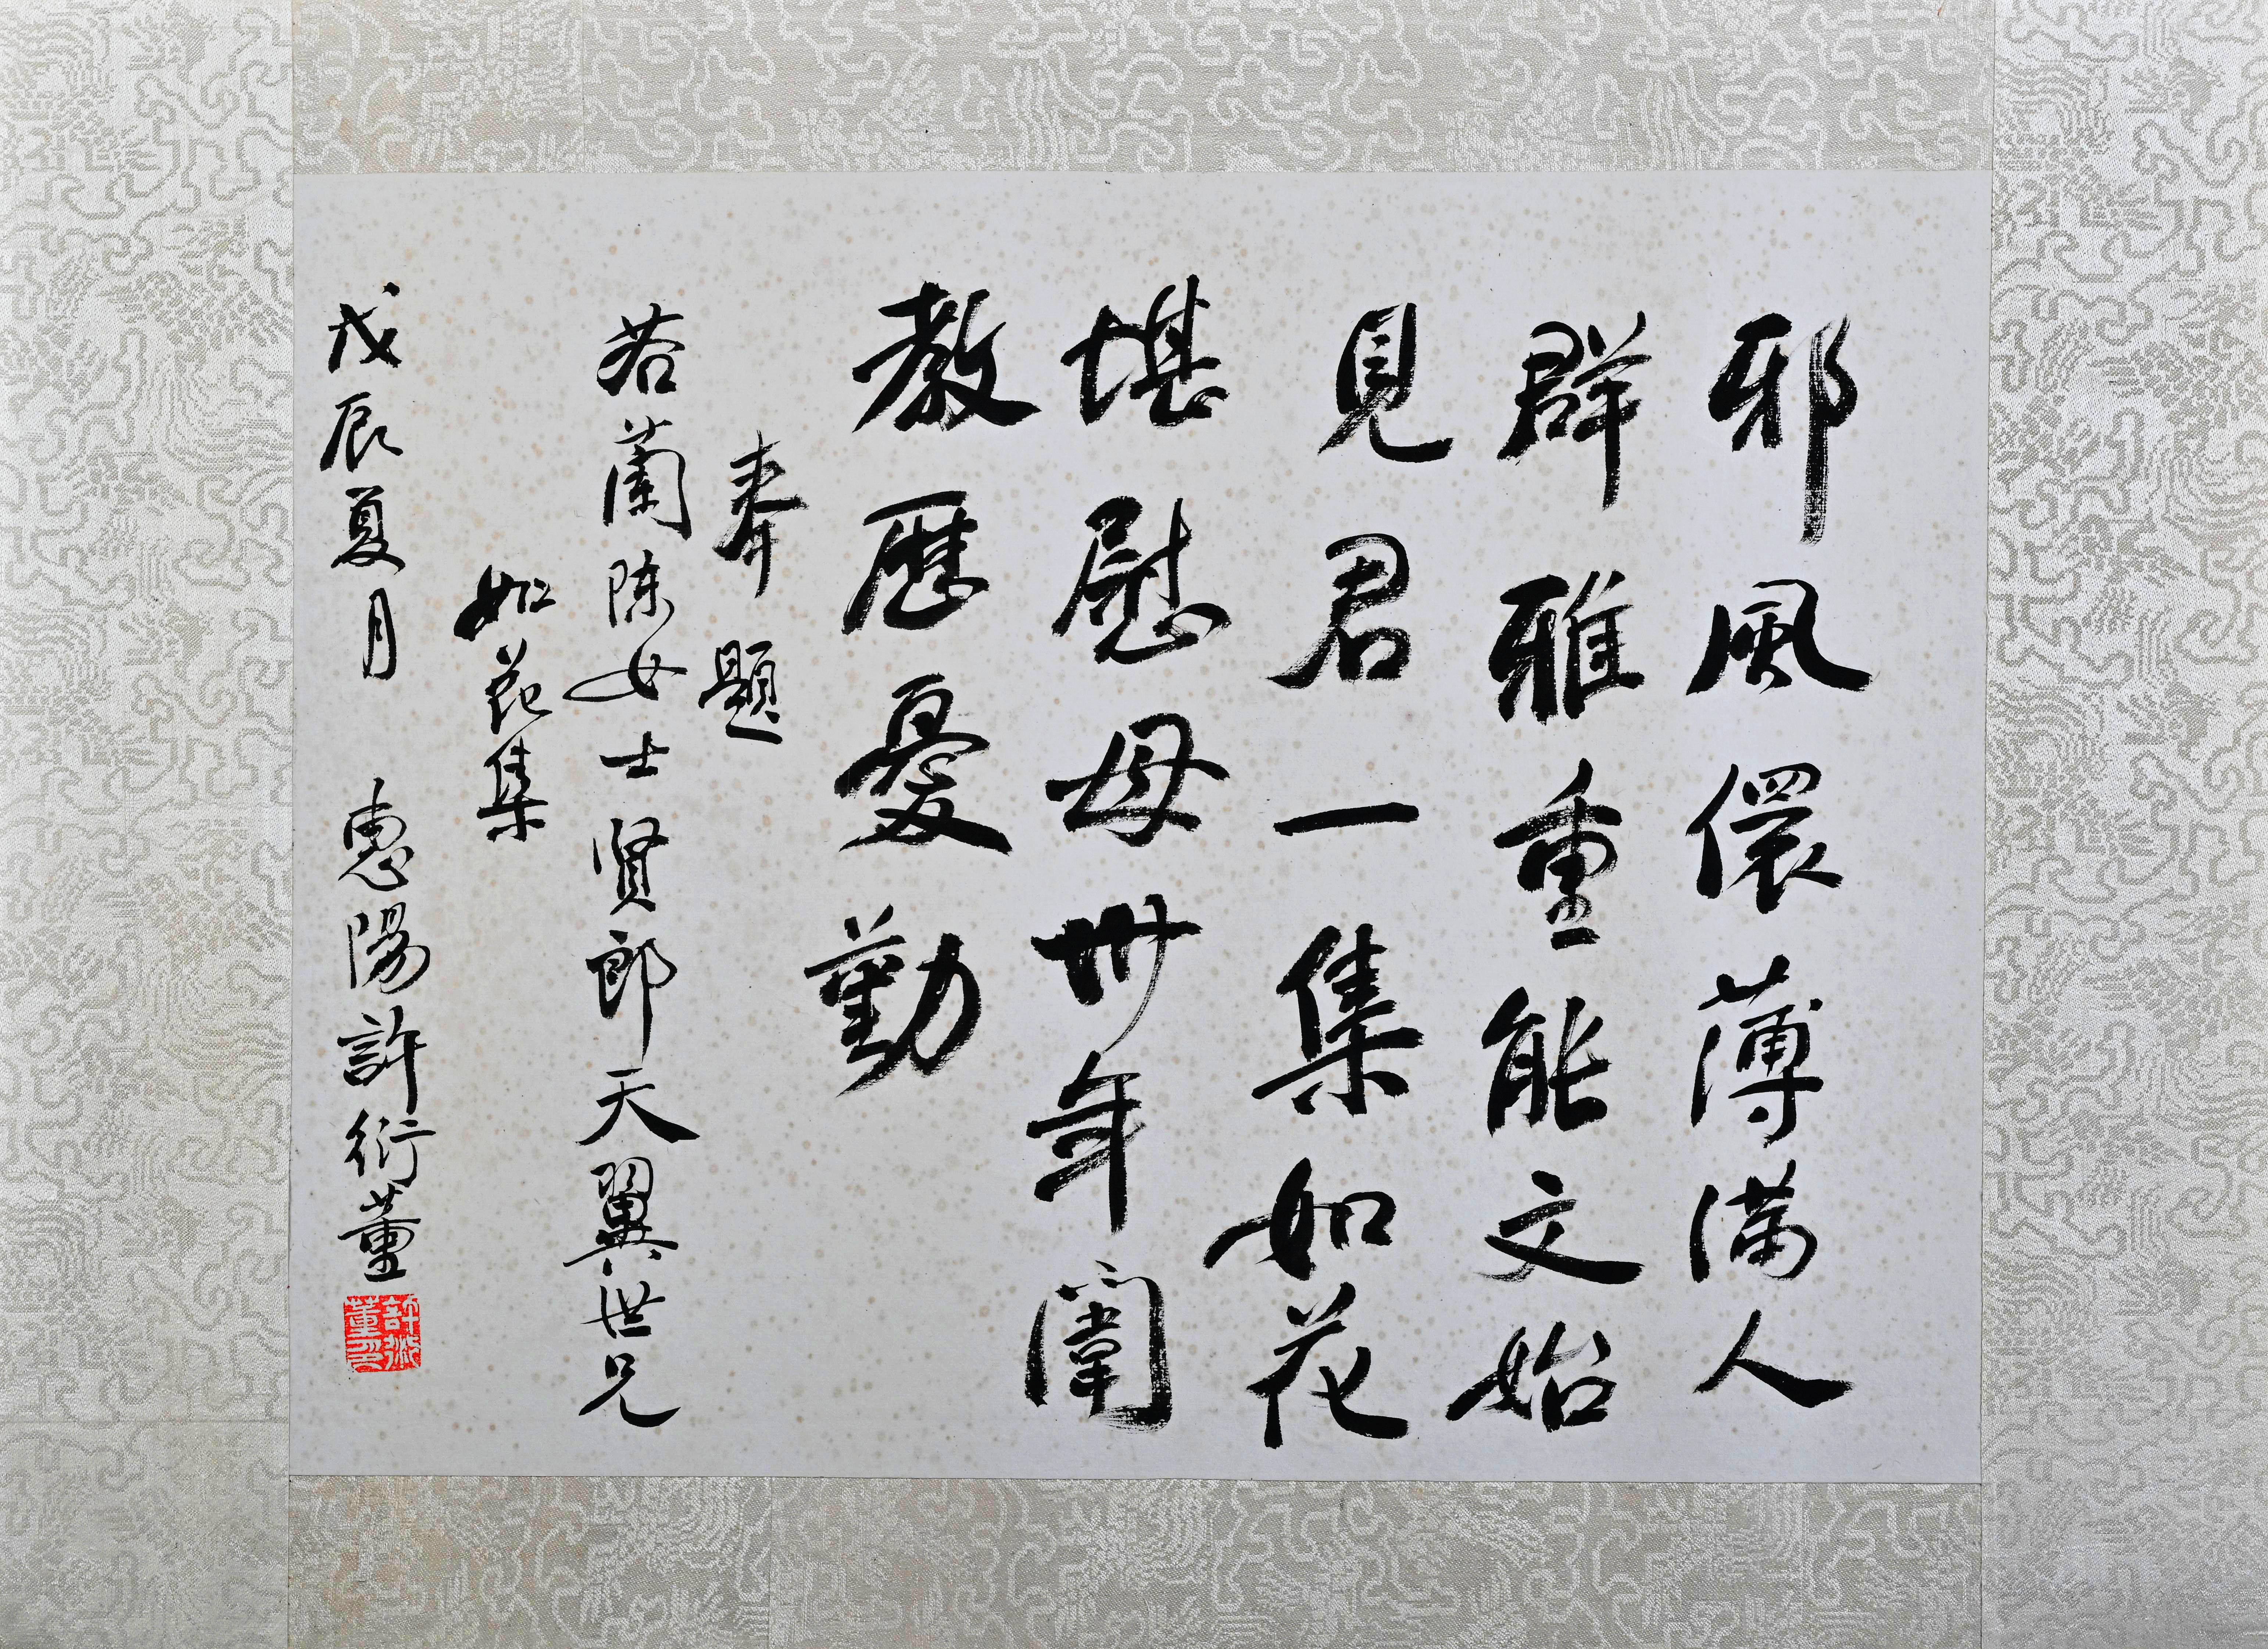 邪風儇薄滿人
群雅重能文始
見君一集如花
堪慰母卅年闈
教歷憂勤
奉題
若蘭陳女士賢郎天翼世兄
如花集
戊辰夏月 惠陽許衍董
許衍董印